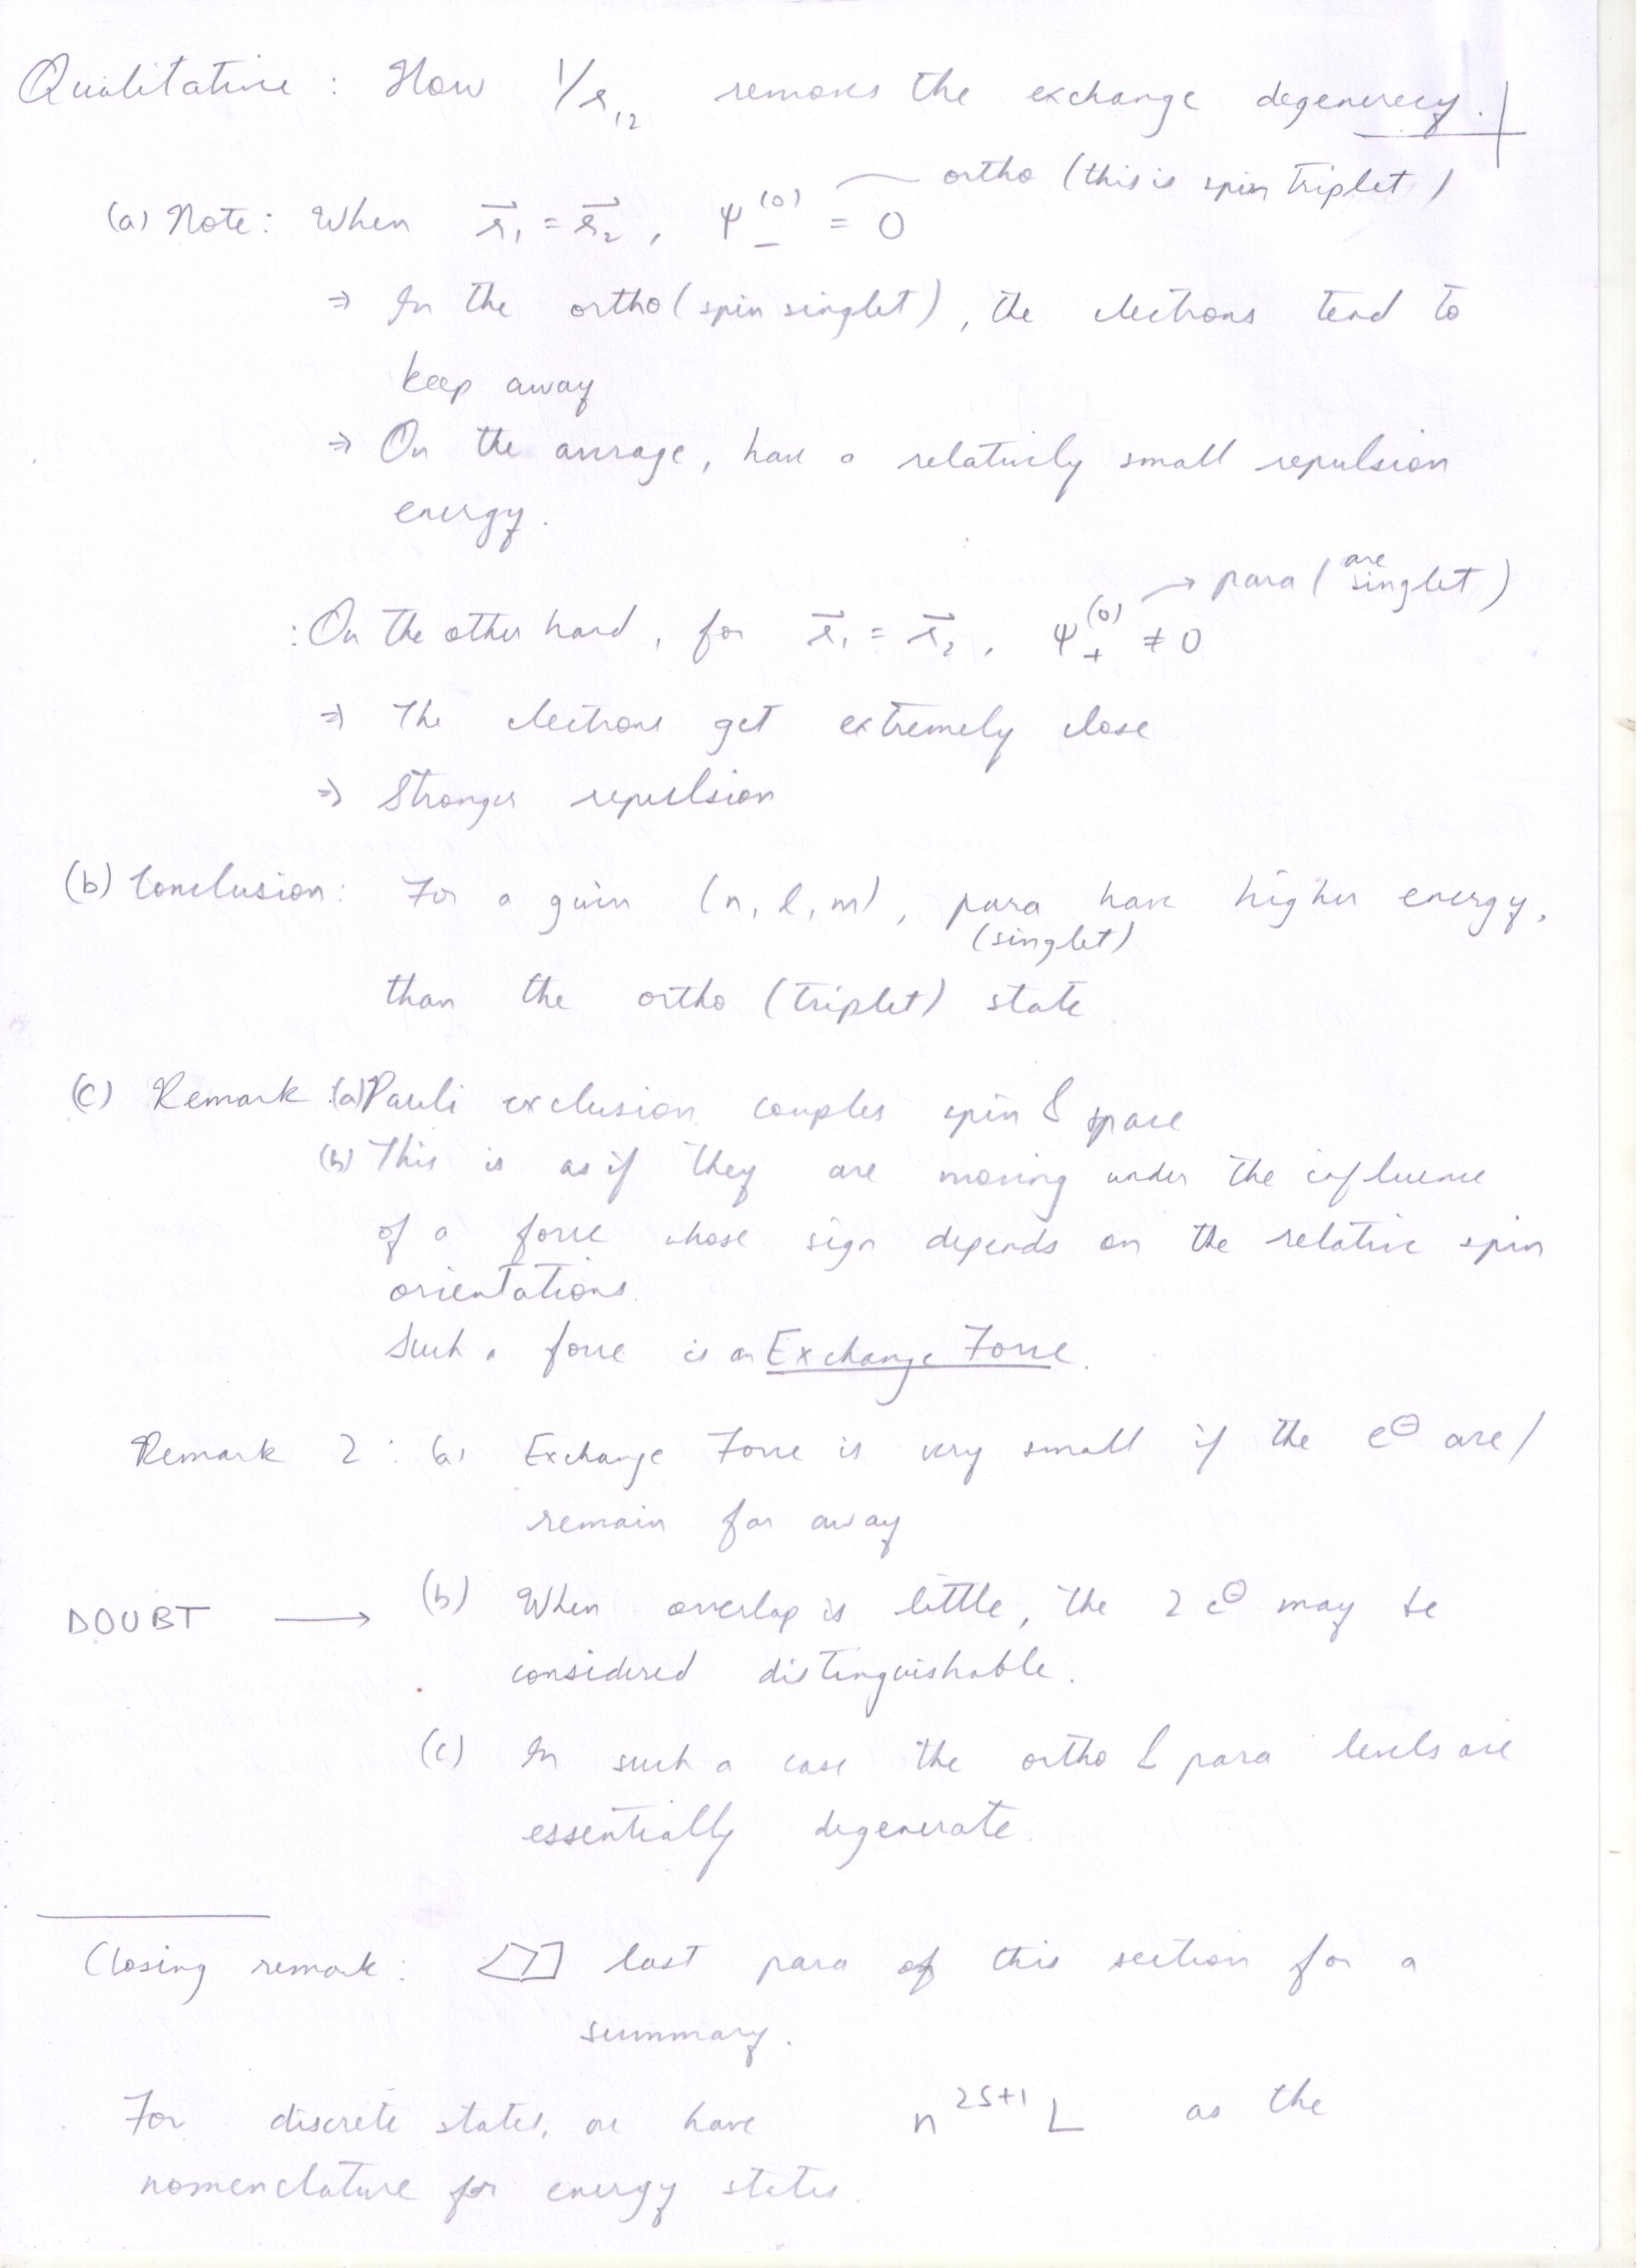 Qualitative : How 1/r₁₂ removes the exchange degenerecy.
ortho (this is spin triplet)
(a) Note: When r⃗₁ = r⃗₂, ψ₋⁽⁰⁾ = 0
⇒ In the ortho (spin singlet), the electrons tend to
keep away
⇒ On the average, have a relatively small repulsion
energy.
→ para (are singlet)
: On the other hand, for r⃗₁ = r⃗₂, ψ₊⁽⁰⁾ ≠ 0
⇒ The electrons get extremely close
⇒ Stronger repulsion
(b) Conclusion: For a given (n, l, m), para have higher energy,
(singlet)
than the ortho (triplet) state
(c) Remark :(a) Pauli exclusion couples spin & space
(b) This is as if they are moving under the influence
of a force whose sign depends on the relative spin
orientations.
Such a force is an Exchange Force.
Remark 2 : (a) Exchange Force is very small if the e⊖ are/
remain far away
DOUBT → (b) When overlap is little, the 2 e⊖ may be
considered distinguishable.
(c) In such a case the ortho & para levels are
essentially degenerate.
Closing remark: last para of this section for a
summary.
For discrete states, we have n²ˢ⁺¹L as the
nomenclature for energy states.